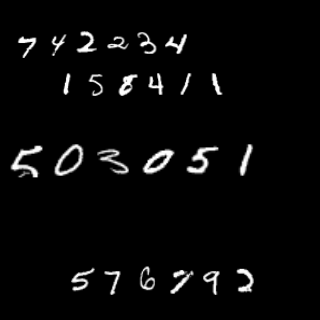 742234
158411
503051
576792